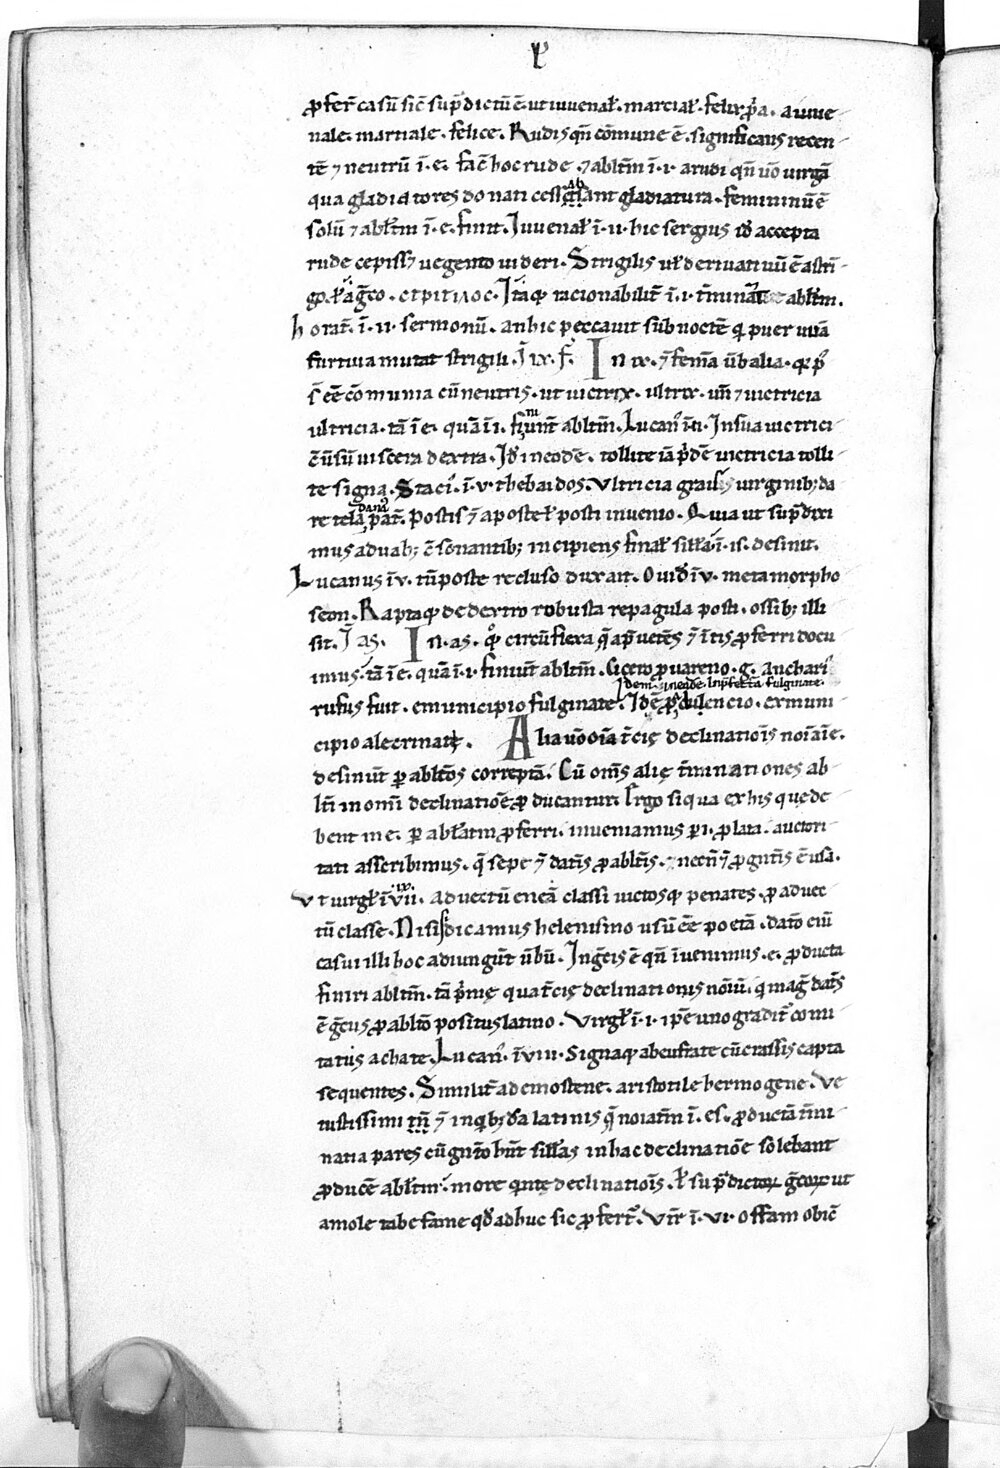 ꝓfer̄ casū sic̄ sup̄dictū ē. ut iuuenal̄. marcial̄. felix p̄a. a iuue-
nale. martiale. felice. Rudis qn̄ cōmune ē. significans recen-
tē ⁊ neutrū ī. e. fac̄ hoc rude. ⁊ abltm̄ ī. i. a rudi qn̄ uō uirgā
qua gladiatores donati cessabant gladiatura. femininū ē
solū ⁊ abltm̄ ī. e. finit. Iuuenal̄ ī. ii. hic sergius id̄ accepta
rude cepiss; uegento uideri. Strigilis ul̄ deriuatiuū ē a stri-
go. ł a g̃co. Itaq̄ racionabilit̄ ī. i. t̄minat abltm̄.
horat̄. ī. ii. sermonū. an hic peccauit sub noctē q̄ puer uuā
furtiua mutat strigili. Ī ix. f̄. In ix. ⁊ femīa ūbalia. q̄ p̄
s̄ ēē cōmunia cū neutris. ut uictrix. ultrix. un̄ ⁊ uictricia
ultricia. tā ī e. quā ī i. finiunt abltm̄. Lucan̄ ī. i. In sua uictrici
cūsū uiscera dextra. Id̄ in eodē. tollite iā p̄dē uictricia tolli-
te signa. Staci ī. v. thebaidos. Vltricia grais uirginib; da
re tela parat. Postis ⁊ a poste ł posti inuenio. Quia ut sup̄ dixi
mus a duab; c̄sonantib; incipiens final̄ sillā ī. is. desinit.
Lucanus ī v. tū poste recluso dux ait. Ouid̄ ī v. metamorpho
seon. Raptaq̄ de dextro robusta repagula posti. ossib; illi
sit. Ī as. In. as. circūflexa q̄ ap̄ uetēs ⁊ ī tis ꝓferri docu
imus. tā ī e. quā ī. i. finiūt abltm̄. Cicero ꝓ uareno. g. anchari
Idem in eadē. Inp̄fectā fulginate.
rufus fuit. e municipio fulginate. Idē ꝓ cluentio. ex muni
cipio alecrinate. Alia uō oīa t̄cię declinationis noīa ī e.
desinūt ꝑ abltōs correptā. Cū om̄s alię t̄minationes ab
lti in om̄i declinatiōe ꝓducantur. Ergo siqua ex his que de
bent in e. ꝑ ablatm̄ ꝓferri inueniamus ꝑ i. ꝓlata. auctori
tati asscribimus. q̄ sepe ⁊ datis ꝓ abltis. ⁊ necn̄ ⁊ ꝓ gn̄tis ē usa.
Vt uirgł ī viii. aduectū eneā classi uictosq̄ penates. ꝓ aduec
tū classe. Nisi dicamus helenismo usū ēē poetā. datō eiū
casui illi hoc adiungūt ūbū. In g̃cis ē qn̄ īuenimus. e. ꝓducta
finiri abltm̄. tā p̄mę qua t̄cię declinationis nōiū. q̄ mag̃ datīs
ē g̃cus ꝓ abltō positus latino. Virgł ī. i. ip̄e uno graditr̄ comi
tatus achate. Lucan̄. ī viii. Signaq̄ ab eufrate cū crassis capta
sequentes. Similit̄ a demostene. aristotile hermogene. Ve
tustissimi tn̄ ⁊ in quib;dā latinis q̄ noīatm̄ ī. es. ꝓductā t̄mi
natia pares cū gn̄to hn̄t sillas in hac declinatiōe solebant
ꝓducē abltm̄ more quintę declinatiōis. ł sup̄dictoꝝ g̃coꝝ ut
a mole tabe fame qd̄ adhuc sic ꝓfert̄. Vir̄ ī. vi. offam obic̄